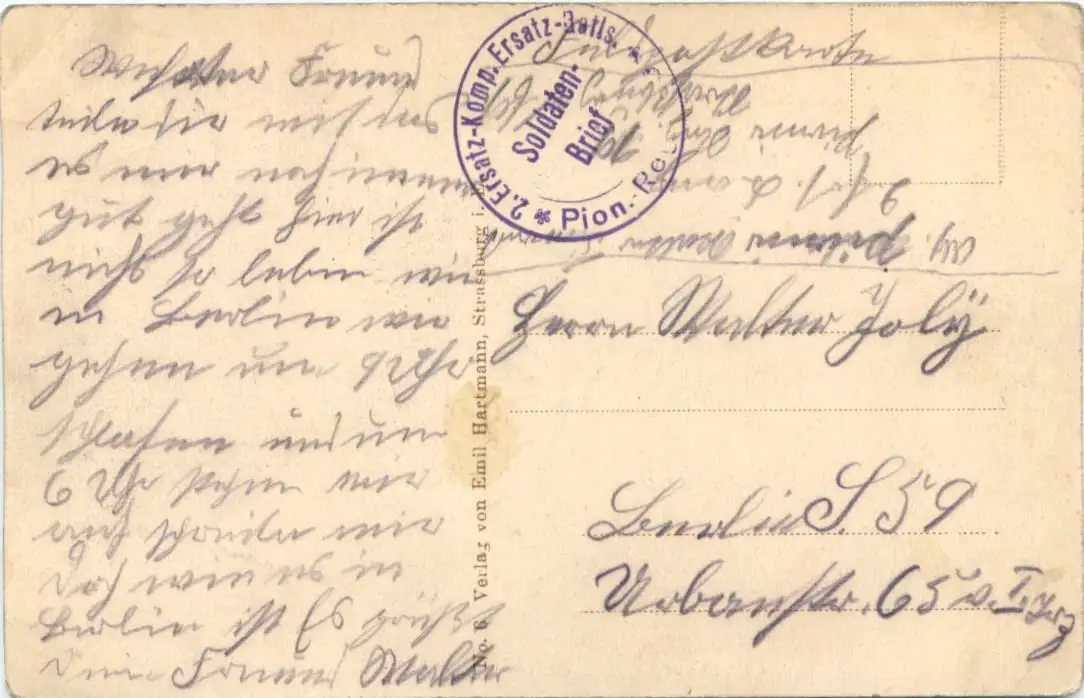 Werter Freund
teile dir mit das
es mir noch immer
gut geht hier ist
nichts so leben wie
in Berlin wir
gehen um 9 Uhr
schlafen und um
6 Uhr stehn wir
auf schreibe mir
doch wie es in
Berlin ist Es grüßt
dein Freund Walter
No. 6. Verlag von Emil Hartmann, Strassburg i.
* 2. Ersatz-Komp. Ersatz-Batls.
Pion.-Reg
Soldaten-
Brief
Feldpostkarte
Herrn Walter Joly
Berlin S. 59
Urbanstr. 65 v. I.